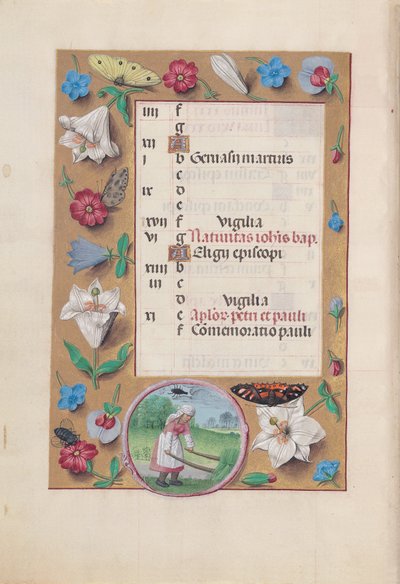 iiii f
g
xii A
i b Geruasii martiris
c
ix d
e
xvii f Vigilia
vi g Natiuitas iohis bap.
A Eligii episcopi
xiiii b
iii c
d Vigilia
xi e Aplor petri et pauli
f Comemoratio pauli